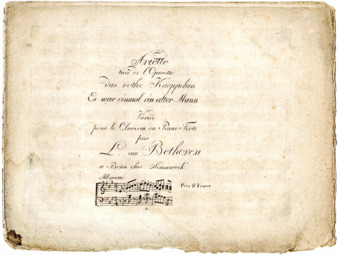 Ariette
tirée de l'Operette
das rothe Kæppchen
Es war einmal ein alter Mann
Variée
pour le Clavecin ou Piano Forte
par
L. van Bethoven
a Bonn chez Simmrock
Allegretto
Prix 2 Francs